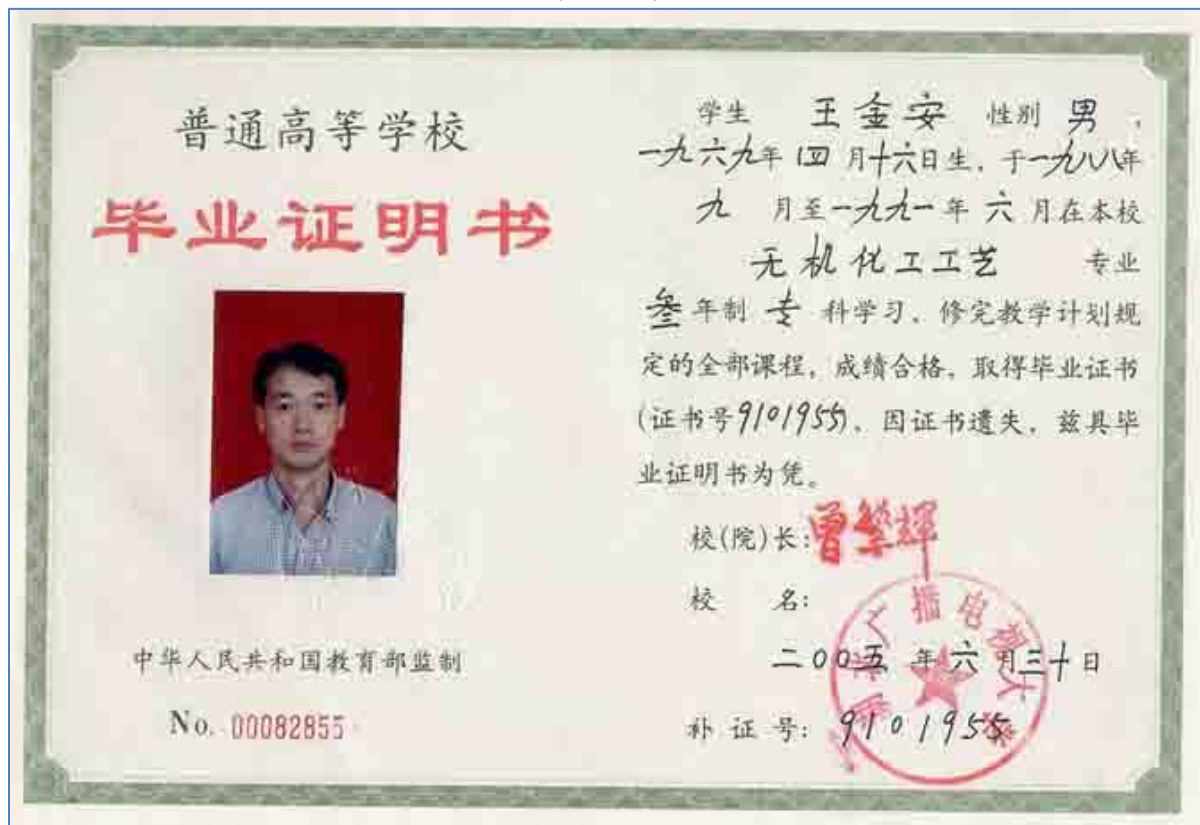 普通高等学校
毕业证明书
中华人民共和国教育部监制
No. 00082855
学生 王金安 性别 男，
一九六九年 四 月十六日生，于一九八八年
九 月至一九九一年 六 月在本校
无机化工工艺 专业
叁年制 专 科学习，修完教学计划规
定的全部课程，成绩合格，取得毕业证书
(证书号9101955)，因证书遗失，兹具毕
业证明书为凭。
校(院)长:曾繁辉
校 名:
广播电视大学
二00五 年 六 月三十日
补 证 号: 9101955